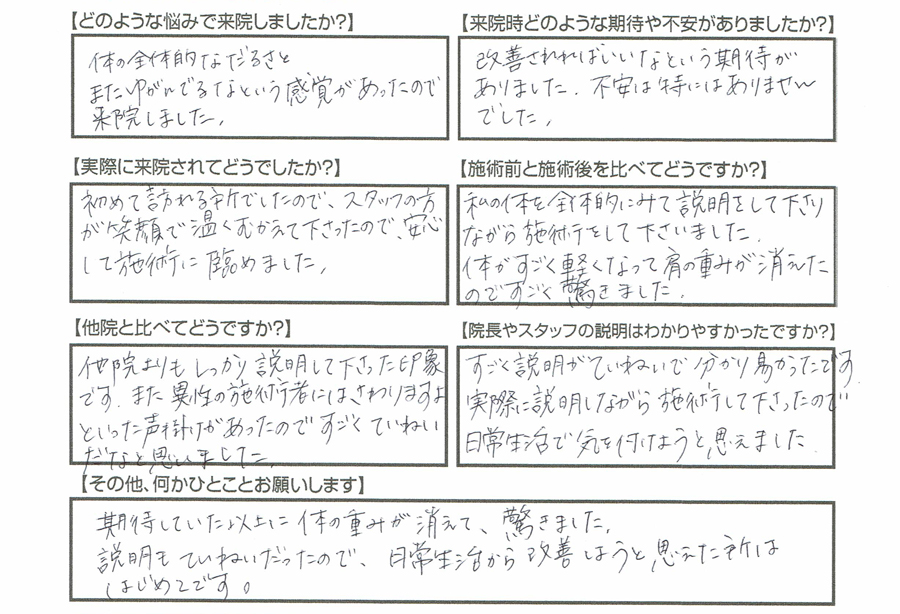 【どのような悩みで来院しましたか?】
体の全体的なだるさと
またゆがんでるなという感覚があったので
来院しました。
【来院時どのような期待や不安がありましたか?】
改善されればいいなという期待が
ありました。不安は特にはありません
でした。
【実際に来院されてどうでしたか?】
初めて訪れる所でしたので、スタッフの方
が笑顔で温くむかえて下さったので、安心
して施術に臨めました。
【施術前と施術後を比べてどうですか?】
私の体を全体的にみて説明をして下さり
ながら施術をして下さいました。
体がすごく軽くなって肩の重みが消えた
のですごく驚きました。
【他院と比べてどうですか?】
他院よりもしっかり説明して下さった印象
です。また異性の施術者にはさわりますよ
といった声掛けがあったのですごくていねい
だなと思いました。
【院長やスタッフの説明はわかりやすかったですか?】
すごく説明がていねいで分かり易かったです。
実際に説明しながら施術して下さったので
日常生活で気を付けようと思えました
【その他、何かひとことお願いします】
期待していた以上に体の重みが消えて、驚きました。
説明もていねいだったので、日常生活から改善しようと思えた所は
はじめてです。